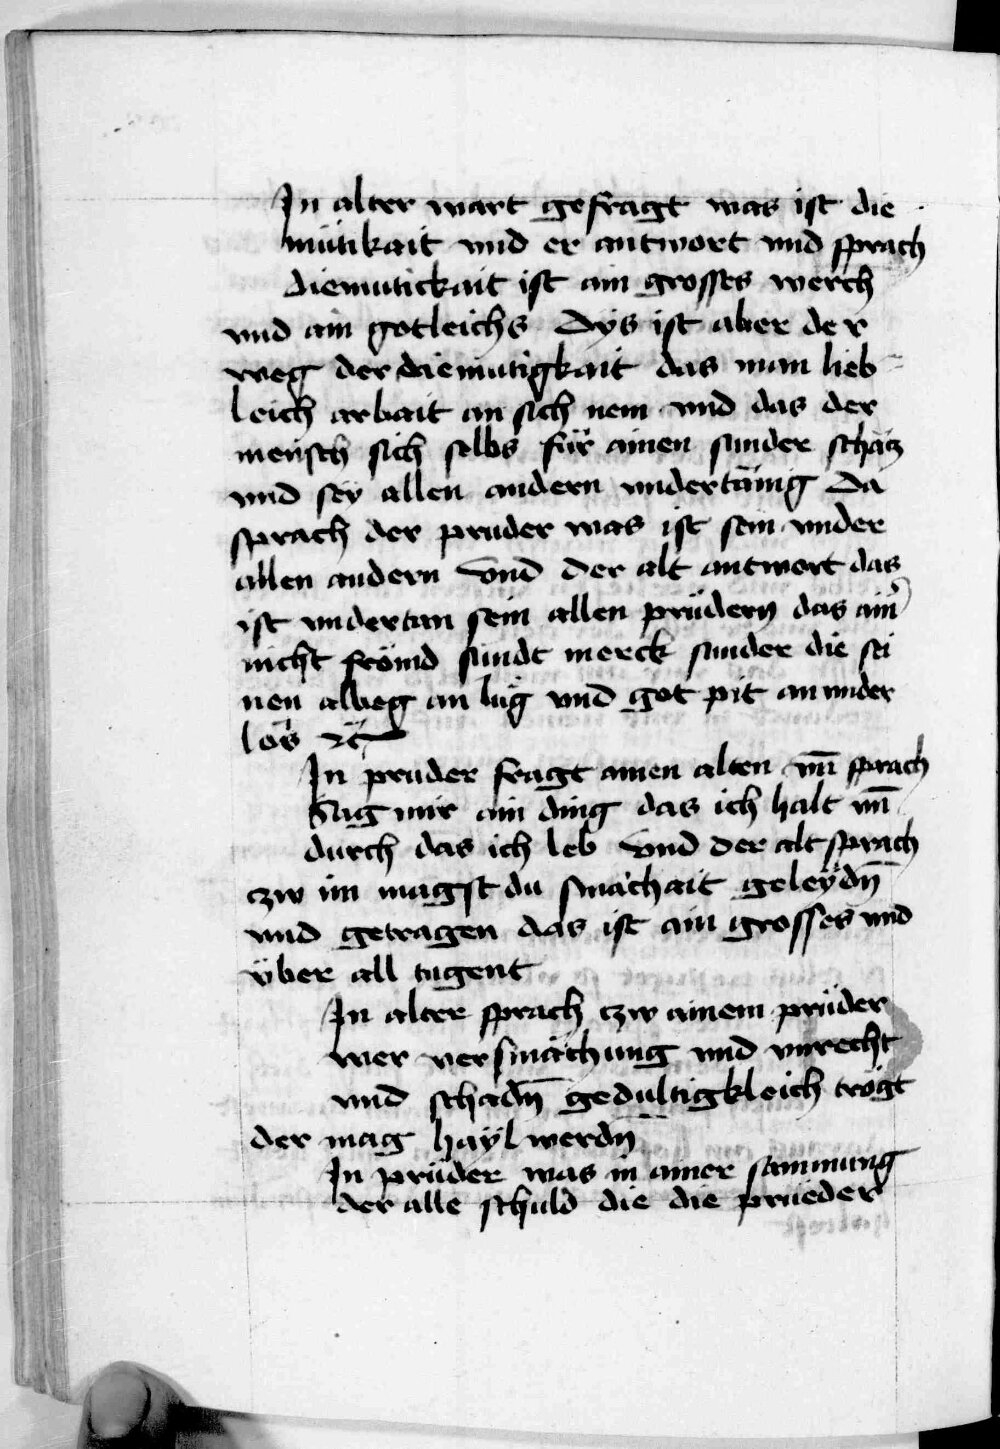 In alter wart gefragt was ist die
mütikait vnd er antwort vnd sprach
diemutickait ist ain grosses werch
vnd ain gotleichs Dÿs ist aber der
weg der diemutigkait das man lieb
leich arbait an sich nem vnd das der
mensch sich selbs für ainen sunder schäcz
vnd seÿ allen andern vndertänig Da
sprach der pruder was ist sein vnder
allen andern Vnd der alt antwort das
ist vndertan sein allen prüdern das ain
nicht frömd sündt merck sunder die sei
nen albeg an lüg vnd got pit an vnder
los ꝛc
In pruder fragt ainen alten vn̄ sprach
Sag mir ain ding das ich halt vn̄
durch das ich leb Vnd der alt sprach
czw im magst du smächait geleÿdn̄
vnd getragen das ist ain grosses vnd
über all tugent
In alter sprach czw ainem prüder
wer versmächung vnd vnrecht
vnd schadn̄ gedultigkleich trögt
der mag haÿl werdn̄
In prüder was in ainer samnung
der alle schuld die die prüeder